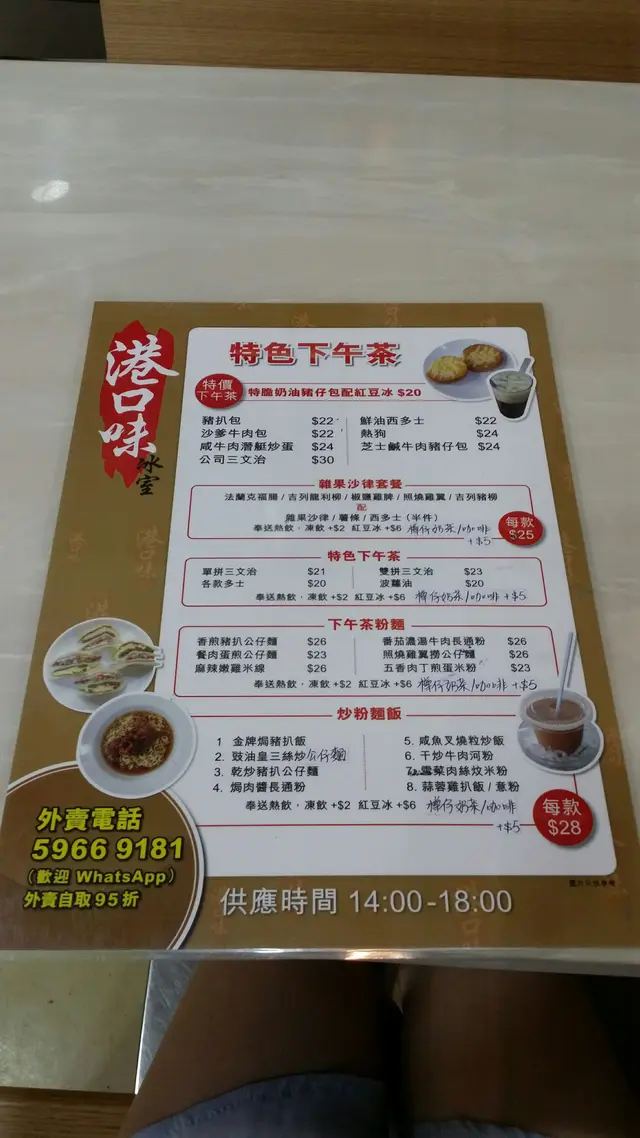 港口味
冰室
特色下午茶
特價
下午茶
特脆奶油豬仔包配紅豆冰 $20
豬扒包 $22 鮮油西多士 $22
沙爹牛肉包 $22 熱狗 $24
咸牛肉潛艇炒蛋 $24 芝士鹹牛肉豬仔包 $24
公司三文治 $30
雜果沙律套餐
法蘭克福腸 / 吉列龍利柳 / 椒鹽雞脾 / 照燒雞翼 / 吉列豬柳
配
雜果沙律 / 薯條 / 西多士 (半件)
奉送熱飲，凍飲+$2 紅豆冰 +$6
奶茶/咖啡
+$5
每款
$25
特色下午茶
單拼三文治 $21 雙拼三文治 $23
各款多士 $20 波蘿油 $20
奉送熱飲，凍飲+$2 紅豆冰 +$6 奶茶/咖啡 +$5
下午茶粉麵
香煎豬扒公仔麵 $26 番茄濃湯牛肉長通粉 $26
餐肉蛋煎公仔麵 $23 照燒雞翼撈公仔麵 $26
麻辣嫩雞米線 $26 五香肉丁煎蛋米粉 $23
奉送熱飲，凍飲+$2 紅豆冰 +$6 奶茶/咖啡 +$5
炒粉麵飯
1 金牌焗豬扒飯 5. 咸魚叉燒粒炒飯
2. 豉油皇三絲炒公仔麵 6. 干炒牛肉河粉
3. 乾炒豬扒公仔麵 7. 雪菜肉絲炆米粉
4. 焗肉醬長通粉 8. 蒜蓉雞扒飯 / 意粉
奉送熱飲，凍飲+$2 紅豆冰 +$6 奶茶/咖啡
+$5
每款
$28
外賣電話
5966 9181
(歡迎 WhatsApp)
外賣自取95折
供應時間 14:00-18:00
圖片只供參考